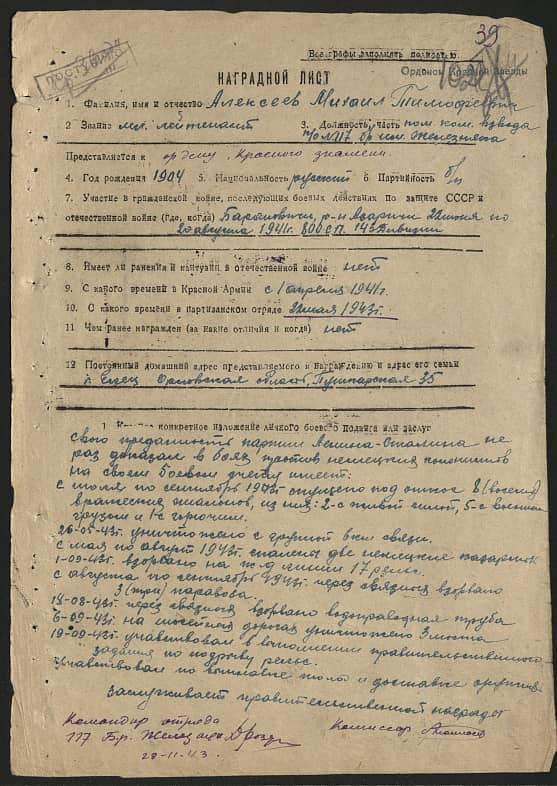 39
Все графы заполнять полностью.
Орденом Красной Звезды
НАГРАДНОЙ ЛИСТ
1. Фамилия, имя и отчество Алексеев Михаил Тимофеевич
2 Звание мл. лейтенант 3. Должность, часть пом. ком. взвода
п/о №117 бр им. Железняка
Представляется к ордену "Красного знамени"
4. Год рождения 1904 5. Национальность русский 6 Партийность б/п
7. Участие в гражданской войне, последующих боевых действиях по защите СССР и
отечественной войне (где, когда) р-н 22 июня по
20 августа 1941г. 800 с.п. 143 дивизии
8. Имеет ли ранения и контузии в отечественной войне нет
9. С какого времени в Красной Армии с 1 апреля 1941г.
10. С какого времени в партизанском отряде 22 мая 1943г.
11 Чем ранее награжден (за какие отличия и когда) нет
12 Постоянный домашний адрес представляемого к награждению и адрес его семьи
г. Елец Орловская область, Пушкарская 35
1 конкретное изложение личного боевого подвига или заслуг
Свою преданность партии Ленина-Сталина не
раз доказал в боях против немецких
на своем боевом счету имеет:
с июля по сентябрь 1943г спущено под откос 8 (восемь)
вражеских эшелонов, из них: 2-с живой силой, 5-с военным
грузом и 1-с горючим.
26-05-43г. уничтожено с группой 8 км связи.
с мая по август 1943г. спалены две немецкие казармы
1-09-43г. взорвано на ж.д. линии 17 рельс.
с августа по сентябрь 1943г. через связного взорвано
3 (три) паравоза.
18-08-43г. через связного взорвано водопроводная труба
6-09-43г. на дорогах уничтожено 3 моста
19-09-43г. учавствовал в выполнении правительственного
задания по подрыву рельс.
Учавствовал по выплавке тола и доставке оружия.
Заслуживает правительственной награды
Командир отряда
117 Бр. Железняка
Комиссар
28-11-43.